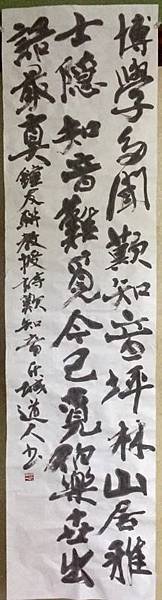 博學多聞歎知音坪林山居雅
士隱知音難覓今已覓伯樂世出
語最真 鐘友聯教授詩歎知音 乐城道人书